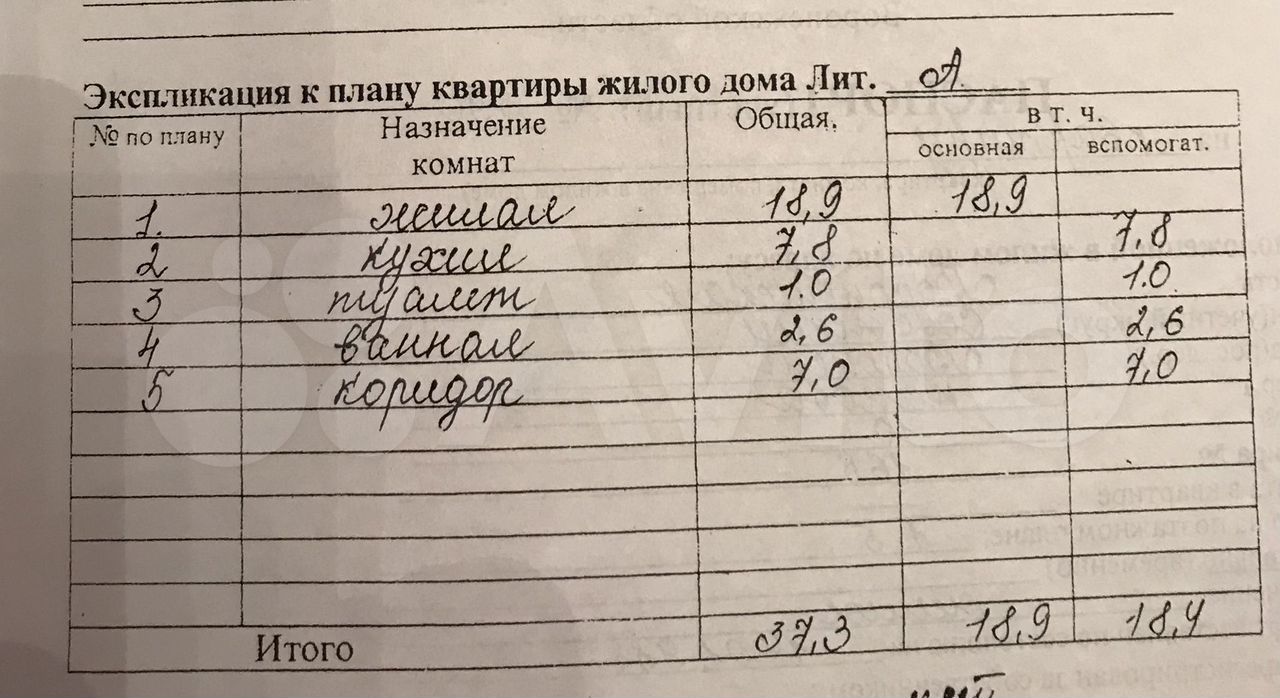 Экспликация к плану квартиры жилого дома Лит. А.
№ по плану Назначение комнат Общая, в т. ч.
основная вспомогат.
1. жилая 18,9 18,9
2 кухня 7,8 7,8
3 туалет 1.0 1.0
4 ванная 2,6 2,6
5 коридор 7,0 7,0
Итого 37,3 18,9 18,4